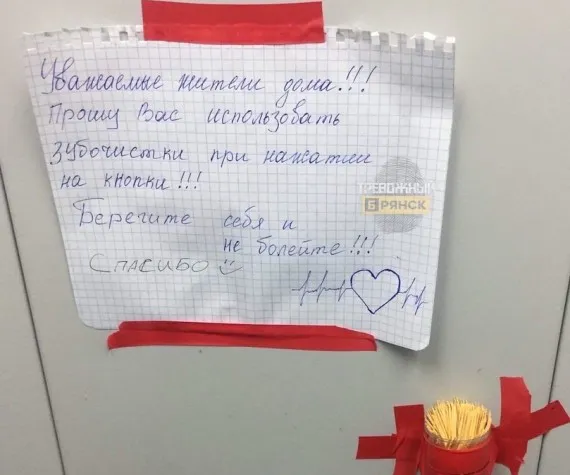 Уважаемые жители дома!!!
Прошу Вас использовать
зубочистки при нажатии
на кнопки!!!
Берегите себя и
не болейте!!!
Спасибо
ТРЕВОЖНЫЙ
БРЯНСК